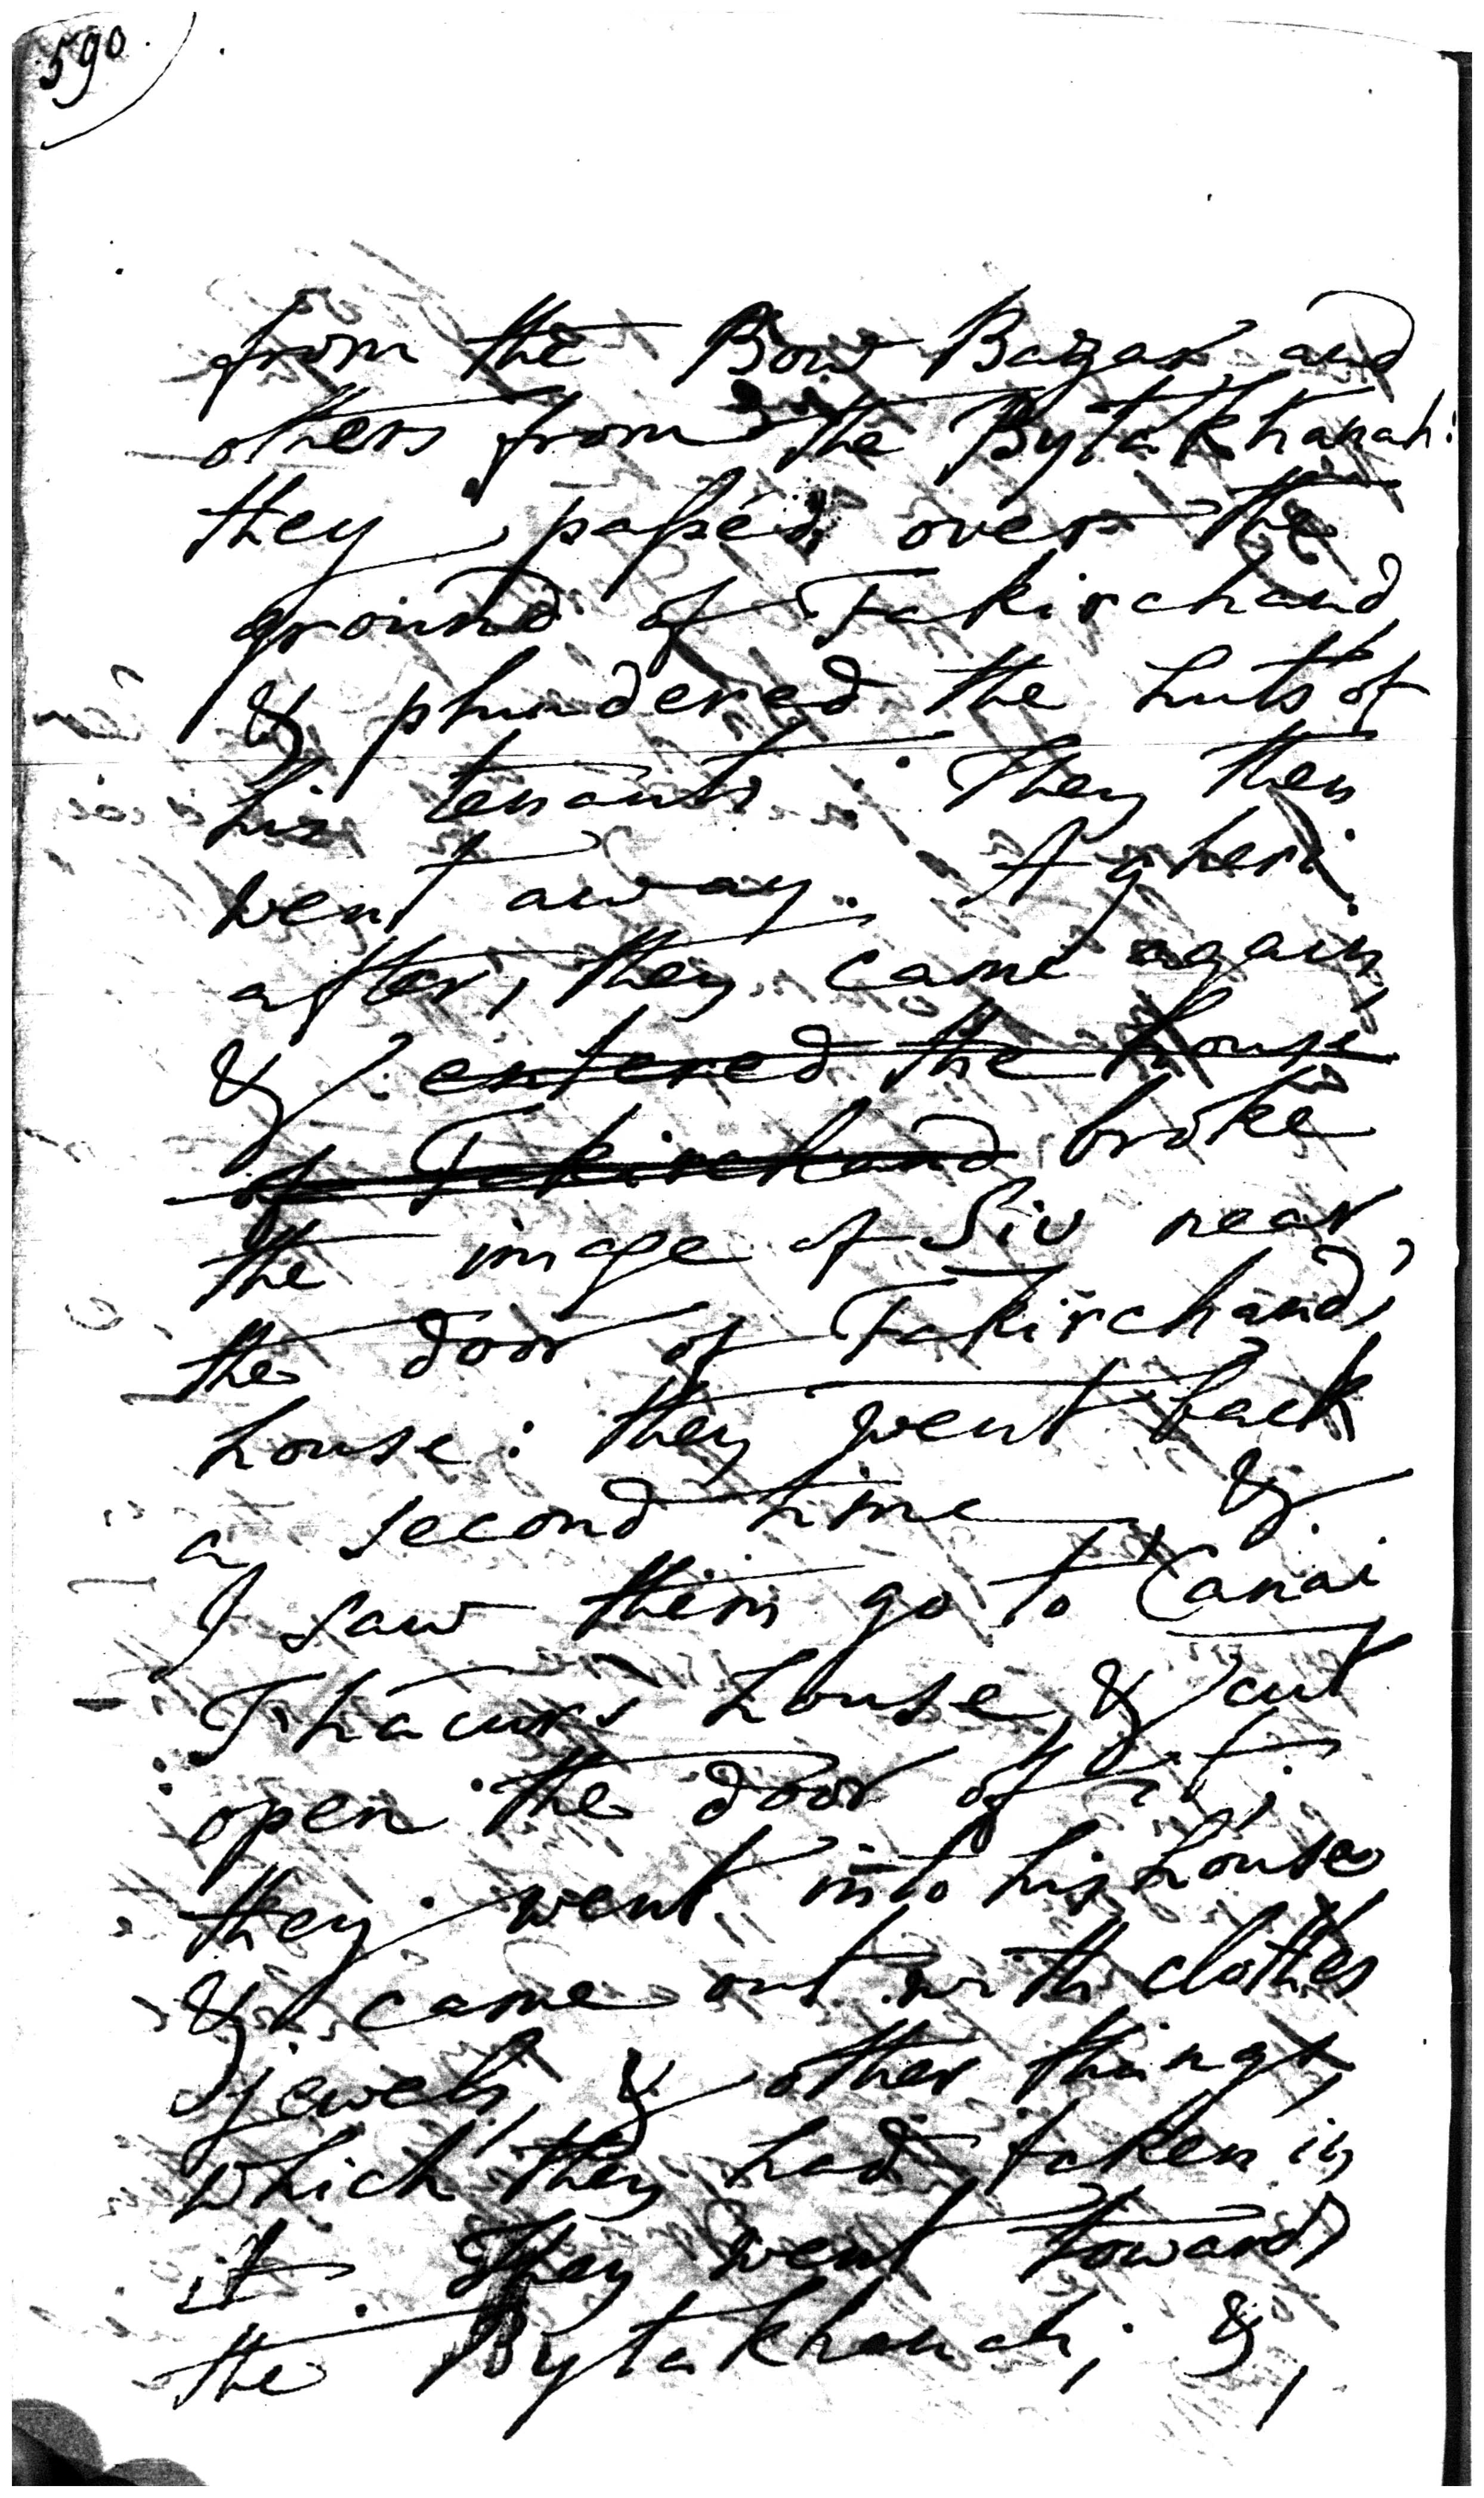 590
from the Bow Bazar, and
others from the Bytakhanah:
they passed over the
ground of Fakirchand
& plundered the huts of
his tenants: They then
went away. A gheri
after, they came again
& entered the house
of Fakirchand broke
the image of Siv near
the door of Fakirchand's
house: they went back
a second time, &
I saw them go to Canai
Thacur's house, & cut
open the door of it;
they went into his house
& came out with clothes
jewels, & other things,
which they had taken in
it. They went towards
the Bytakhanah; &,